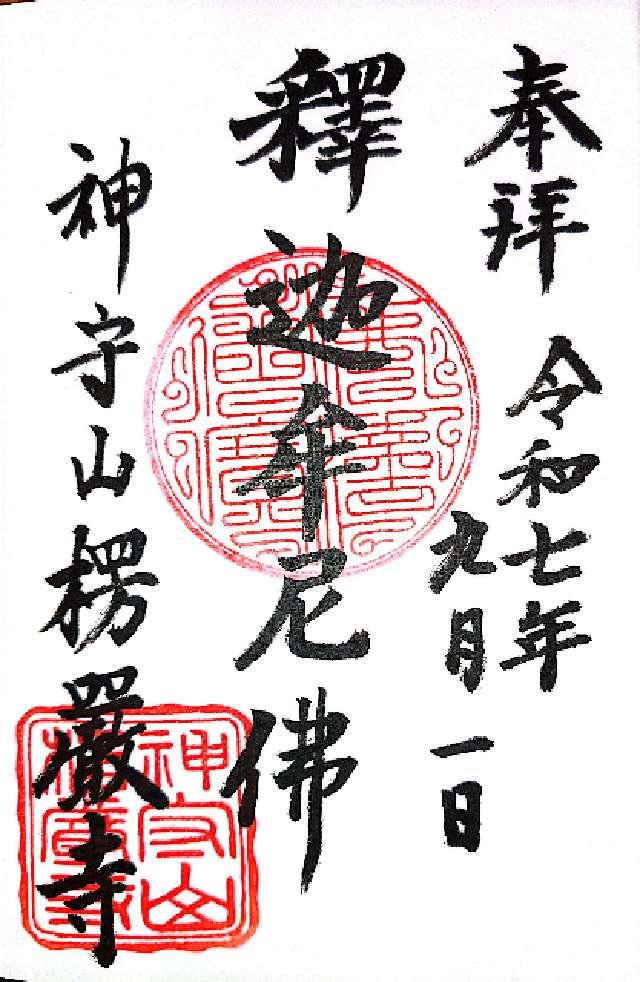 奉拝
令和七年
九月一日
釋迦牟尼佛
神守山楞嚴寺
神守山
楞嚴寺